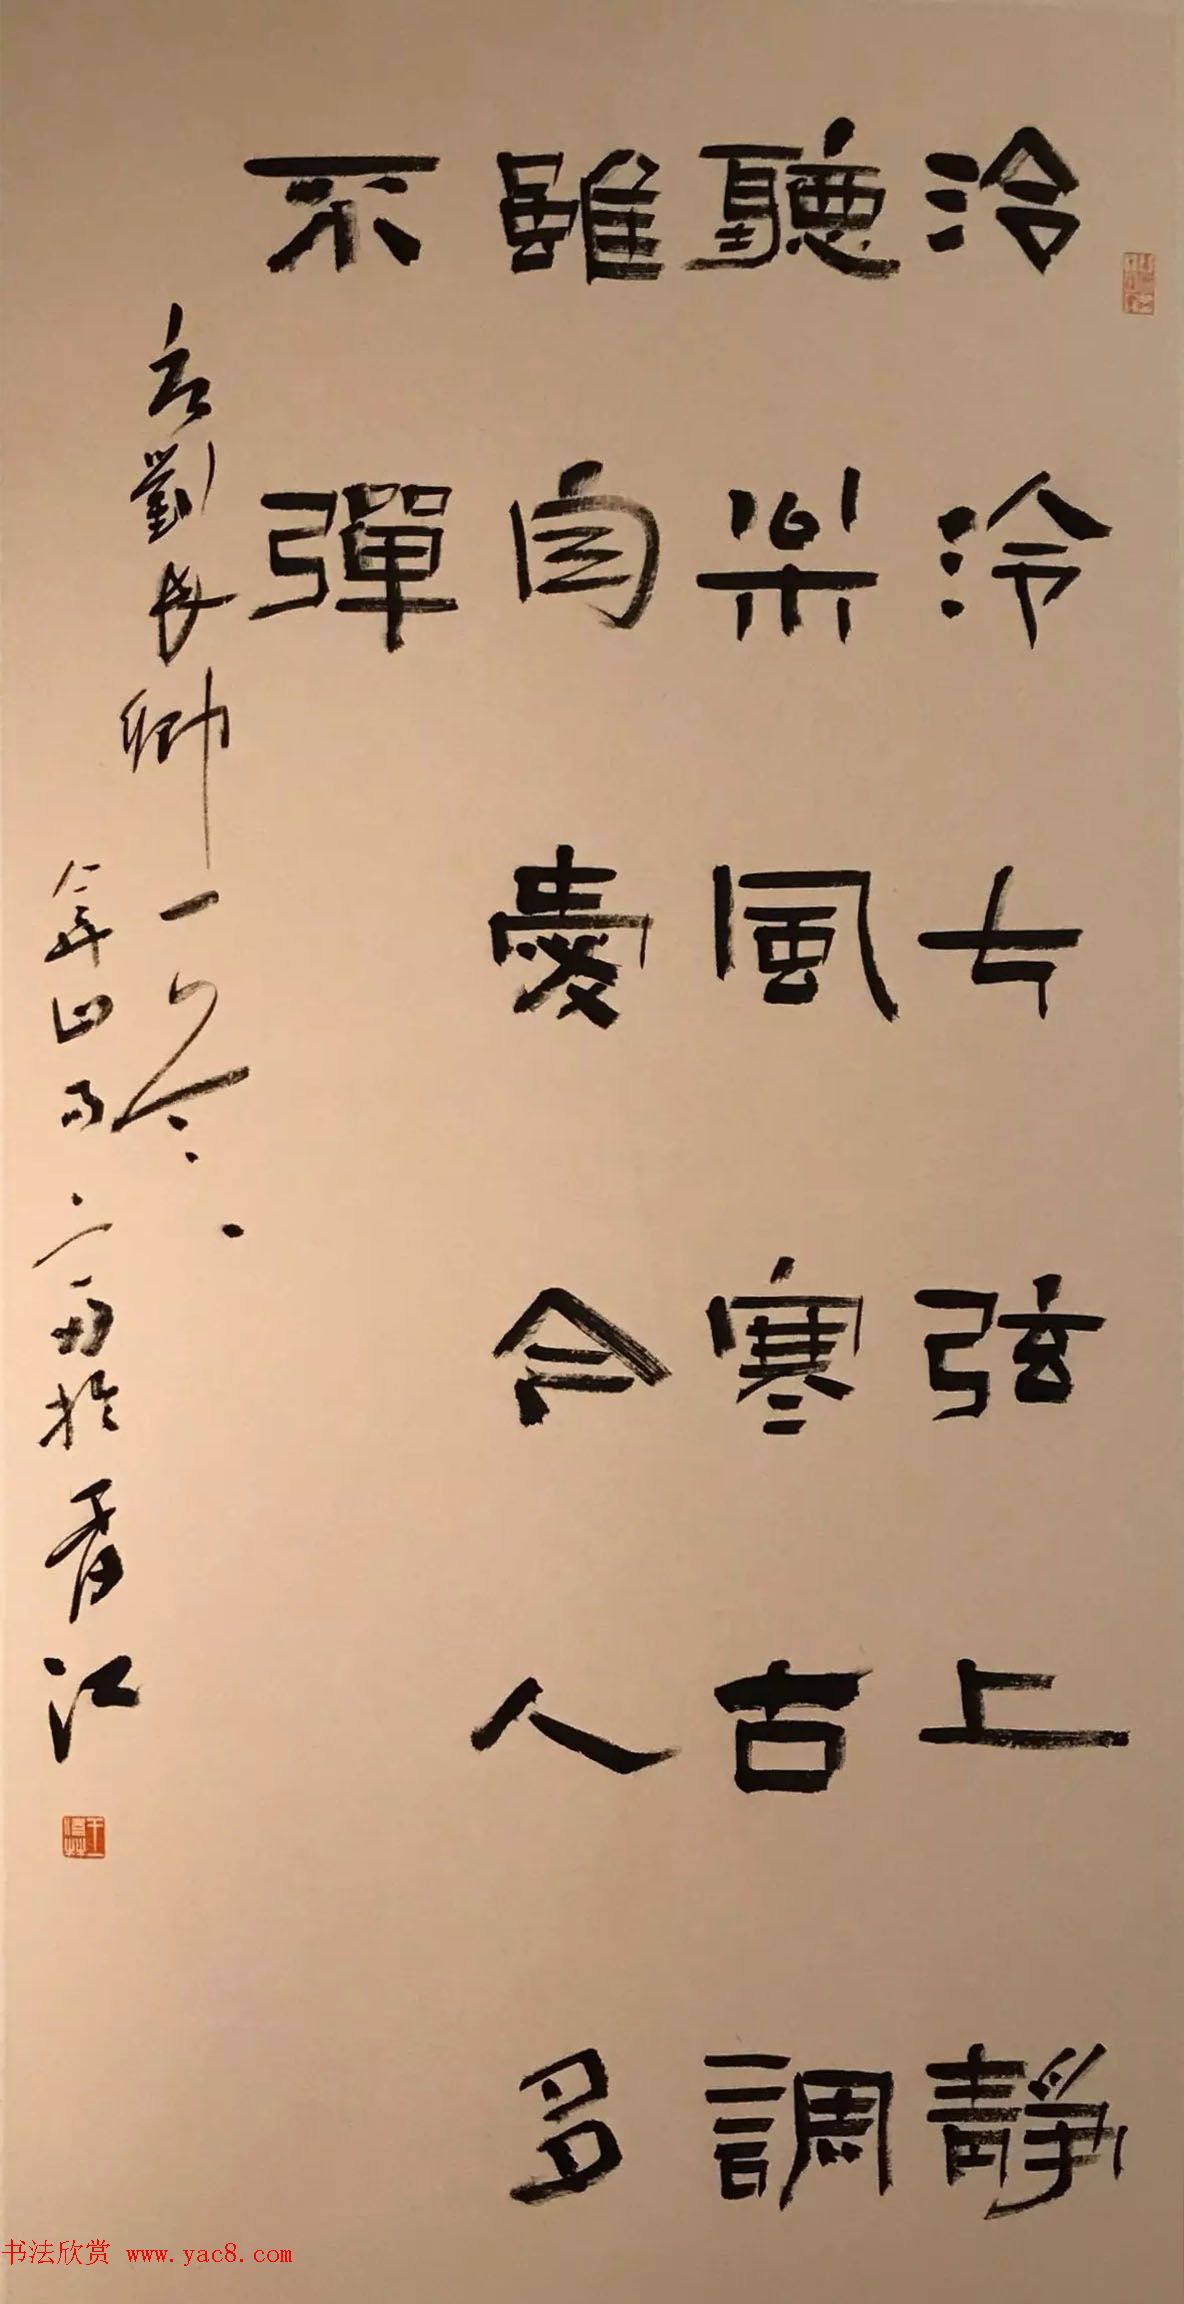 泠泠七弦上靜
聽松風寒古調
雖自愛今人多
不彈
右劉長卿一
弇山於香江
书法欣赏 www.yac8.com